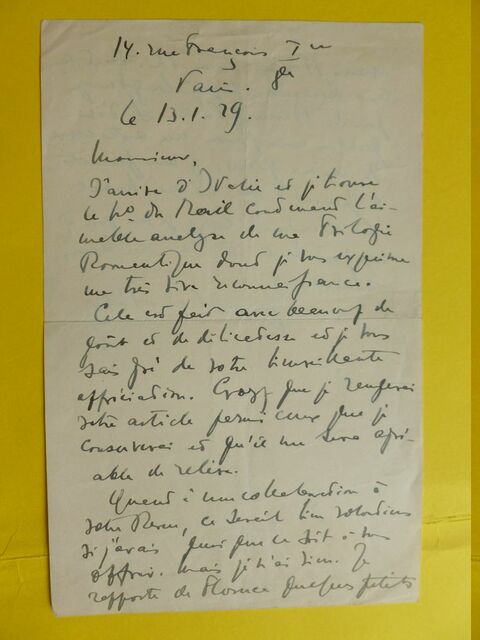 14. rue François Ier
Paris. 8e
le 13.1.29.
Monsieur,
J'arrive d'Italie et je trouve
le No. du Mail contenant l'ai-
mable analyse de ma Trilogie
Romantique dont je vous exprime
ma très vive reconnaissance.
Cela est fait avec beaucoup de
goût et de délicatesse et je vous
sais gré de votre bienveillante
appréciation. Croyez que je rangerai
votre article parmi ceux que je
conserverai et qu'il me sera agré-
able de relire.
Quant à une collaboration à
votre Revue, ce serait bien volontiers
si j'avais quoi que ce soit à vous
offrir. Mais je n'ai rien. Je
rapporte de Florence quelques petits